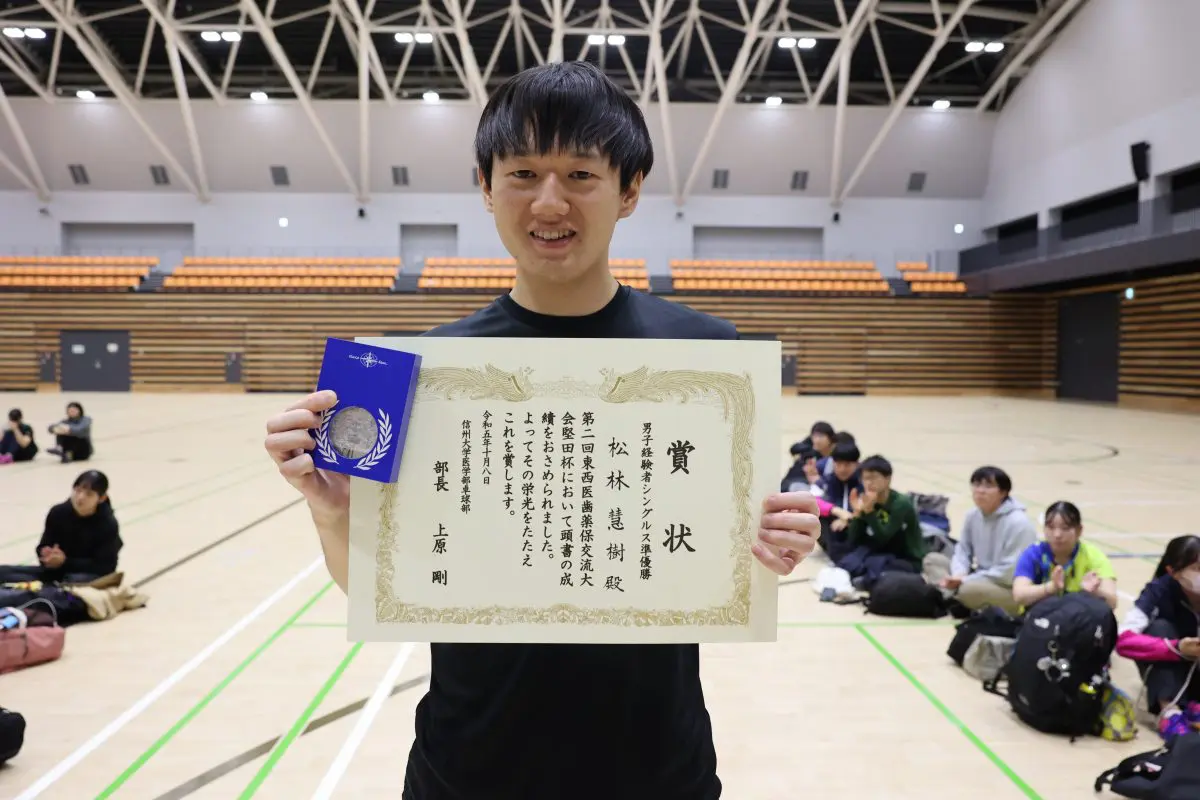 賞状
男子経験者シングルス準優勝
松林慧樹殿
第二回東西医歯薬保交流大
会堅田杯において頭書の成
績をおさめられました。
よってその栄光をたたえ
これを賞します。
令和五年十月八日
信州大学医学部卓球部
部長 上原 剛